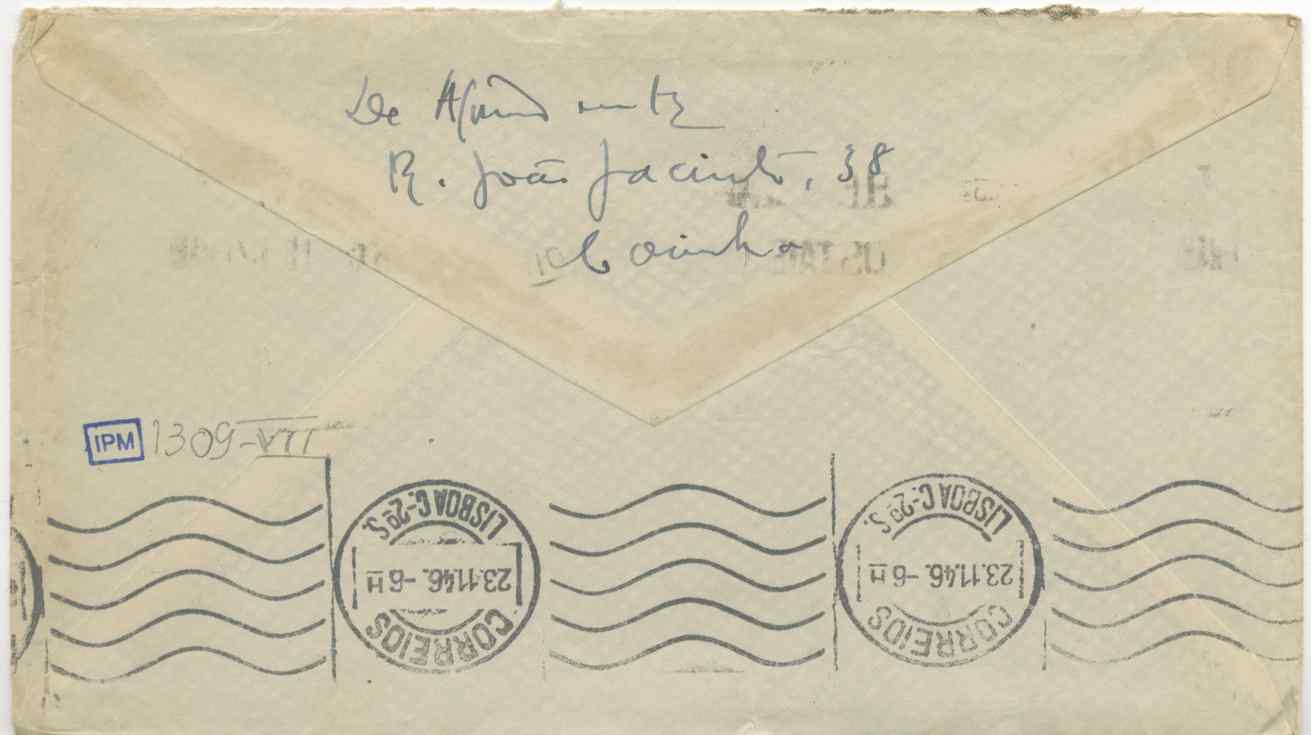 De
R. João Jacinto, 38
Coimbra
IPM 1309-VII
CORREIOS
23.11.46.-6 H
LISBOA C.-2ª S.
CORREIOS
23.11.46.-6 H
LISBOA C.-2ª S.